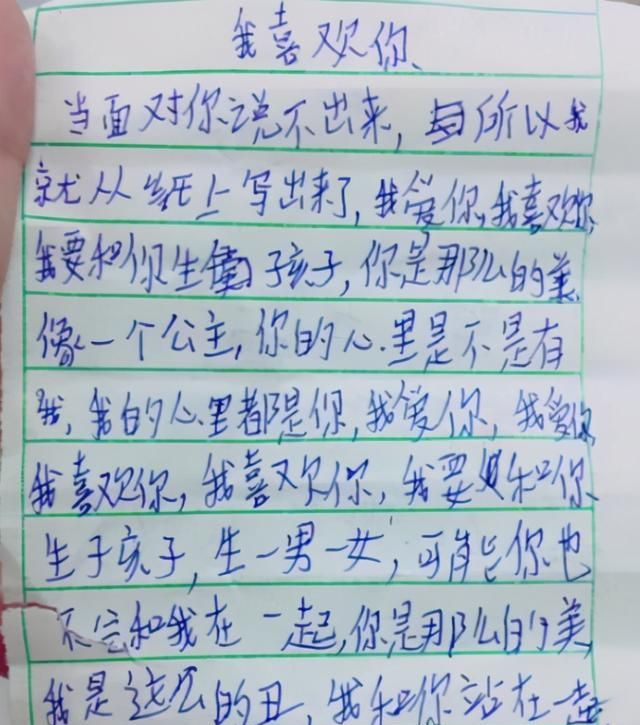 我喜欢你
当面对你说不出来，所以我
就从纸上写出来了，我爱你，我喜欢你
我要和你生孩子，你是那么的美
像一个公主，你的心里是不是有
我，我的心里都是你，我爱你，我爱你
我喜欢你，我喜欢你，我要和你
生子孩子，生一男一女，可能你也
不会和我在一起，你是那么的美
我是这么的丑，我和你站在一起